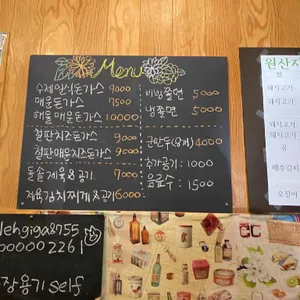 Menu
수제일식돈가스 9000
매운돈가스 7500
해물매운돈가스 10000
철판치즈돈가스 9000
철판매운치즈돈가스 9000
돌솥제육&공기 7000
제육김치찌개&공기 6000
비빔쫄면 5000
냉쫄면 5000
군만두(8개) 4000
추가공기 1000
음료수 1500
원산지
돼지고기
돼지고기
돼지고기
콩
배추김치
오징어
lehgiga8755
000002261
장용기 self